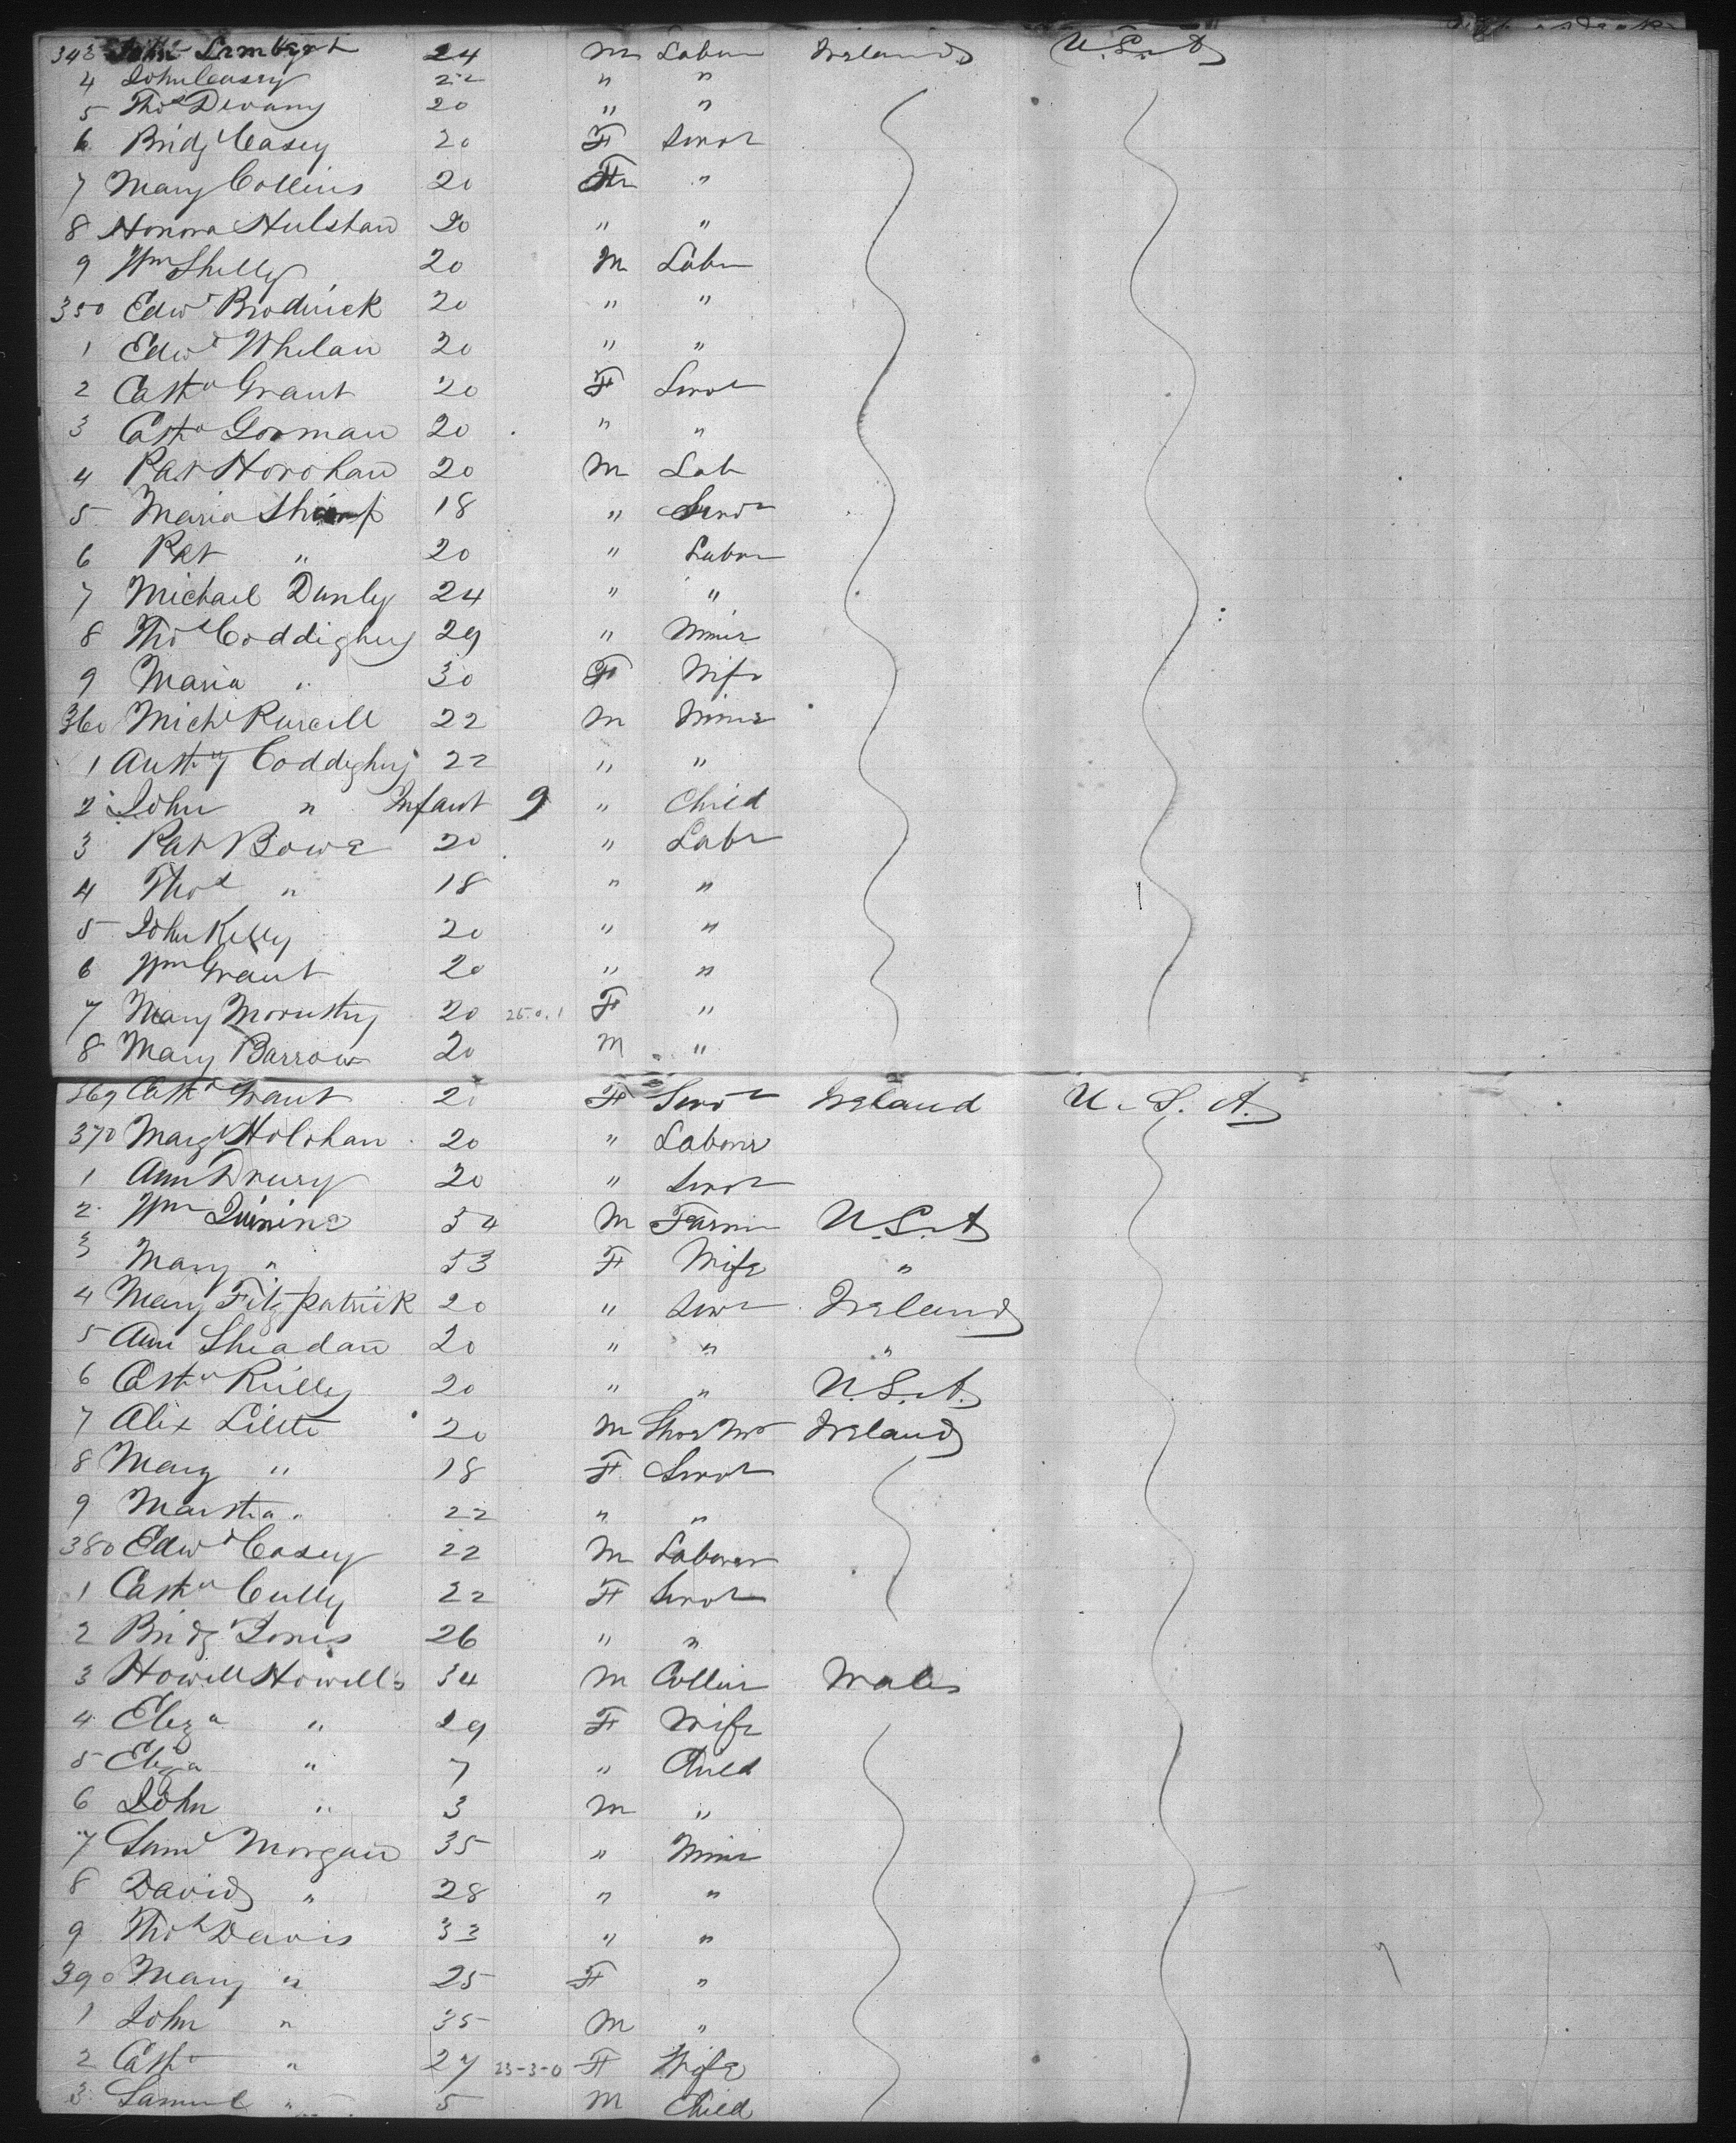 343 John Lambert 24 M Labr Ireland U.S.A
4 John Causey 22 " "
5 Thos Devany 20 " "
6 Bridgt Casey 20 F Servt
7 Mary Collins 20 "
8 Honora Hulshan 20 " "
9 Wm Shelly 20 M Labr
350 Edwd Brodrick 20 " "
1 Edwd Whelan 20 " "
2 Casthn Grant 20 F Servt
3 Casth Gorman 20 " "
4 Pat Horohan 20 M Lab
5 Maria 18 " Servt
6 Pat " 20 " Labor
7 Michael Dunly 24 " "
8 Thos Coddighy 29 " Miner
9 Maria " 30 F Wife
360 Michl Purcell 22 M Miner
1 Austy Coddighy 22 " "
2 John " Infant 9 " Child
3 Pat Bowe 20 " Labr
4 Thos " 18 " "
5 John Kelly 20 " "
6 Wm Grant 20 " "
7 Mary 20 25.0.1 F "
8 Mary Barrow 20 M "
369 Cathn Grant 20 F Servt Ireland U.S.A.
370 Margt Holohan 20 " Laborer
1 Ann Drury 20 " Servt
2 Wm 54 M Farmr U.S.A
3 Mary " 53 F Wife "
4 Mary Fitzpatrick 20 " Servt Ireland
5 Ann Sheadan 20 " " "
6 Casthn Reilly 20 " " U.S.A.
7 Alex 20 M Ireland
8 Marg " 18 F Servt
9 Martha " 22 " "
380 Edwd Casey 22 M Laborer
1 Cathn Cully 22 F Servt
2 Bridgt Jones 26 " "
3 Howell Howells 34 M Collier Wales
4 Eliza " 29 F Wife
5 Eliza " 7 " Child
6 John " 3 M "
7 Saml Morgan 35 " Miner
8 David " 28 " "
9 Thos Davis 33 " "
390 Mary " 25 F "
1 John " 35 M "
2 Cath " 27 23-3-0 F Wife
3 Samuel " 5 M Child